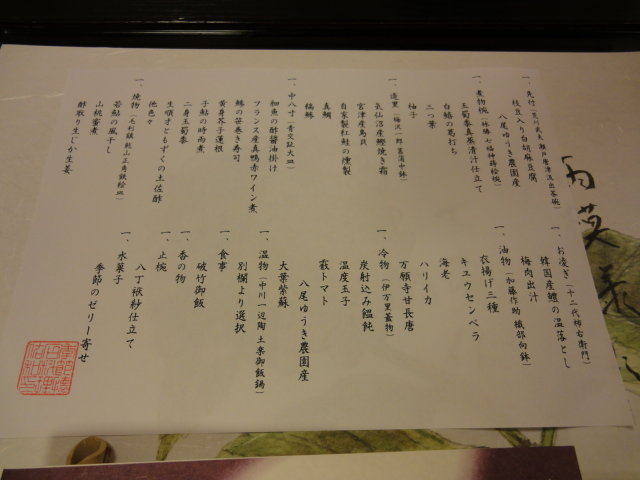 一、先付(荒川武夫 瀬戸唐津流出茶碗)
枝豆入り白胡麻豆腐
八尾ゆうき農園産
一、煮物椀(林勝 七福神蒔絵椀)
玉蜀黍真蒸清汁仕立て
白鱚の葛打ち
三つ葉
柚子
一、造里(梅沢一郎 菖蒲中鉢)
気仙沼産鰹焼き霜
宮津産鳥貝
自家製紅鮭の燻製
真鯛
縞鰺
一、中八寸(青交趾大皿)
細魚の酢醤油掛け
フランス産真鴨赤ワイン煮
鱒の笹巻き寿司
黄身芥子蓮根
子鮎の時雨煮
二身玉蜀黍
生順才ともずくの土佐酢
他色々
一、焼物(毛利鎮 乾山正角鉄絵皿)
若鮎の風干し
山桃蜜煮
酢取り生じか生姜
一、お凌ぎ(十二代柿右衛門)
韓国産鱧の温落とし
梅肉出汁
一、油物(加藤作助 織部向鉢)
衣揚げ三種
キュウセンベラ
海老
ハリイカ
万願寺甘長唐
一、冷物(伊万里蓋物)
炭射込み饂飩
温度玉子
薮トマト
八尾ゆうき農園産
大葉紫蘇
一、温物(中川一辺陶 土楽御飯鍋)
別欄より選択
一、食事
破竹御飯
一、香の物
一、止椀
八丁袱紗仕立て
一、水菓子
季節のゼリー寄せ